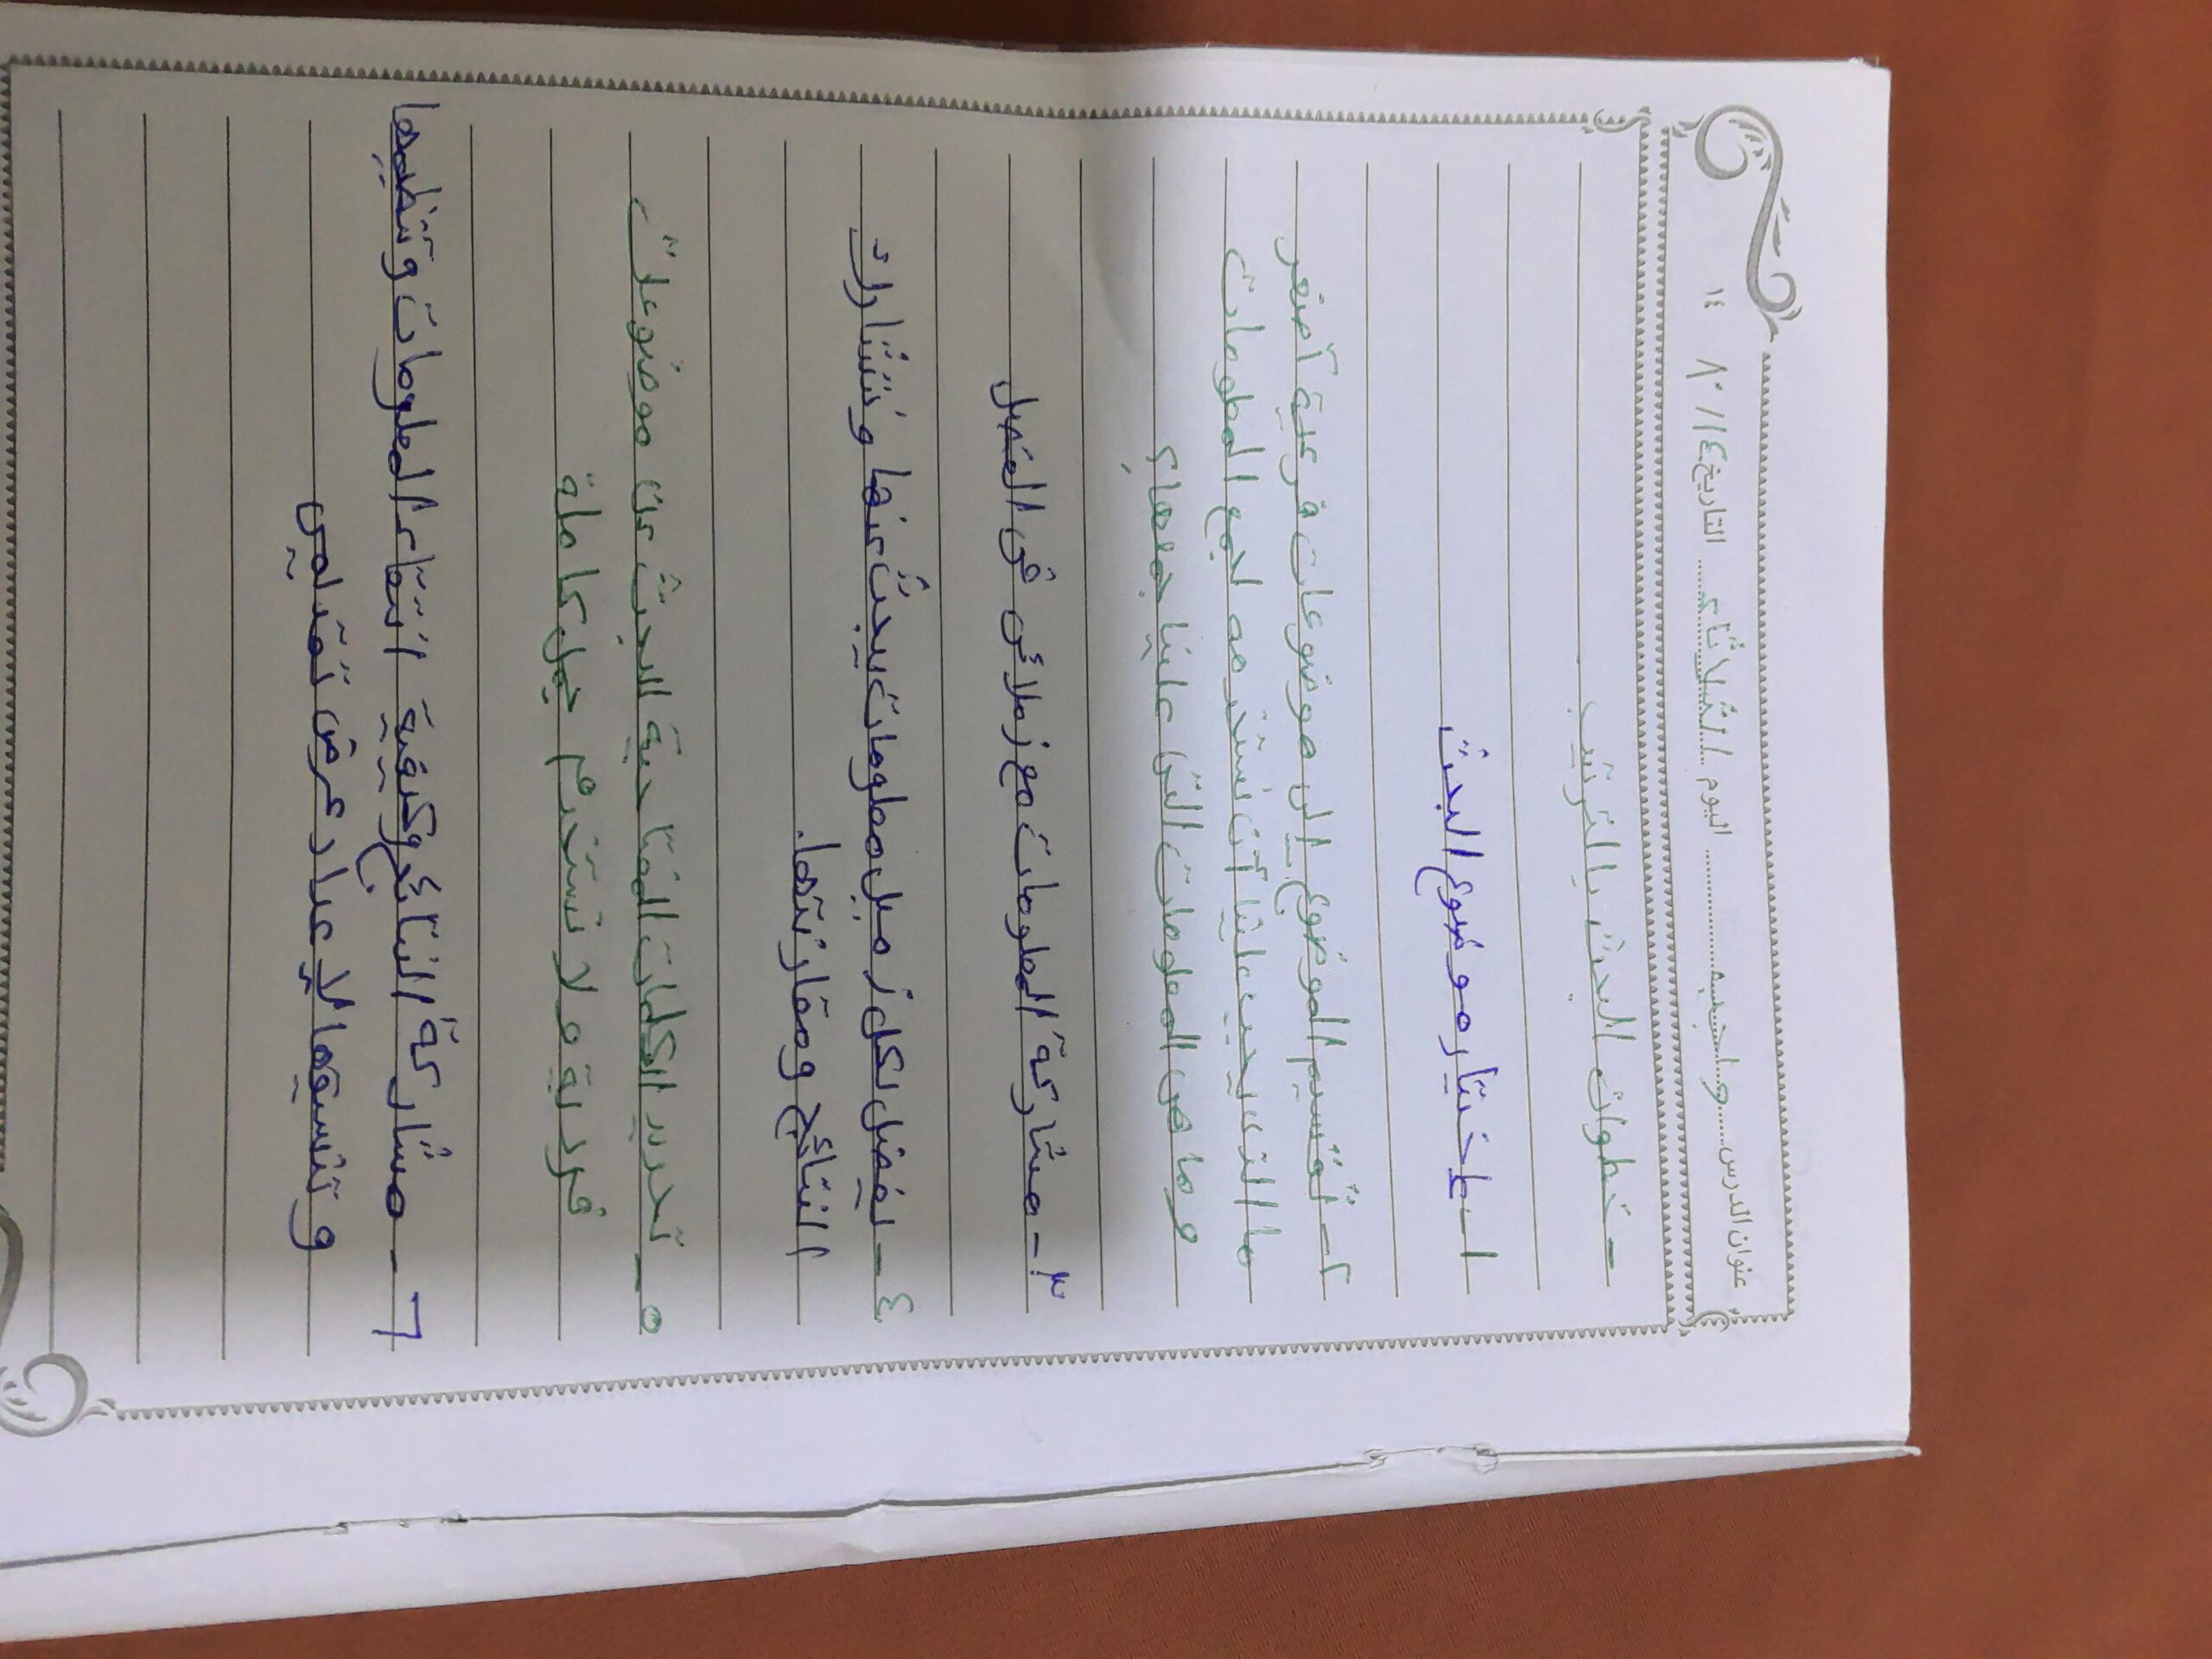 عنوان الدرس واجب اليوم الثلاثاء التاريخ ١٤ / ٨٠ / ١٤
- خطوات البحث بالترتيب.
١- اختيار موضوع البحث
٢- تقسيم الموضوع إلى موضوعات فرعية أصغر
ما الترتيب علينا أن نستخدمه لجمع المعلومات
وما هى المعلومات التى علينا جمعها؟
٣- مشاركة المعلومات مع زملائى فى الفصل
٤- يفضل لكل زميل معلومات يبحث عنها ونتشارك
النتائج ومقارنتها.
٥- تحديد الكلمات المفتاحية البحث عن موضوعات
فردية ولا نستخدم جمل كاملة
٦- مشاركة النتائج وكيفية انتقاء المعلومات وتنظيمها
وتنسيقها لإعداد عرض تقديمى